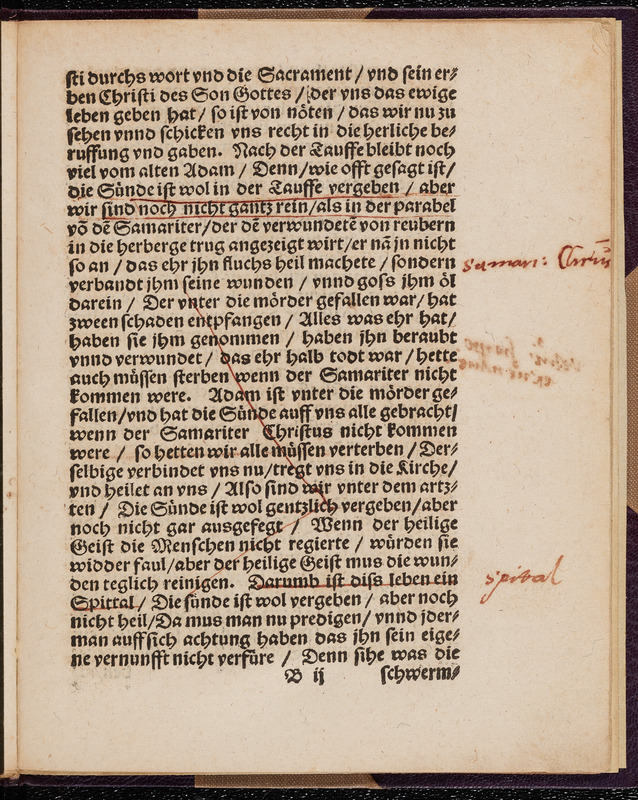 sti durchs wort vnd die Sacrament / vnd sein er⸗
ben Christi des Son Gottes / der vns das ewige
leben geben hat / so ist von nöten / das wir nu zu
sehen vnnd schicken vns recht in die herliche be⸗
ruffung vnd gaben. Nach der Tauffe bleibt noch
viel vom alten Adam / Denn/wie offt gesagt ist/
die Sünde ist wol in der Tauffe vergeben / aber
wir sind noch nicht gantz rein/als in der parabel
võ dẽ Samariter/der dẽ verwundetẽ von reubern
in die herberge trug angezeigt wirt/er nã jn nicht
so an / das ehr jhn fluchs heil machete / sondern
verbandt jhm seine wunden / vnnd goss jhm öl
darein / Der vnter die mörder gefallen war/ hat
zween schaden entpfangen / Alles was ehr hat/
haben sie jhm genommen / haben jhn beraubt
vnnd verwundet / das ehr halb todt war / hette
auch müssen sterben wenn der Samariter nicht
kommen were. Adam ist vnter die mörder ge⸗
fallen/vnd hat die Sünde auff vns alle gebracht/
wenn der Samariter Christus nicht kommen
were / so hetten wir alle müssen verterben / Der⸗
selbige verbindet vns nu/tregt vns in die Kirche/
vnd heilet an vns / Also sind wir vnter dem artz⸗
ten / Die Sünde ist wol gentzlich vergeben/aber
noch nicht gar ausgefegt / Wenn der heilige
Geist die Menschen nicht regierte / würden sie
widder faul/aber der heilige Geist mus die wun⸗
den teglich reinigen. Darumb ist diss leben ein
Spittal / Die sünde ist wol vergeben / aber noch
nicht heil/Da mus man nu predigen/ vnnd jder⸗
man auff sich achtung haben das jhn sein eige⸗
ne vernunfft nicht verfüre / Denn sihe was die
B ij schwerm⸗
samari: Chr̃us
spital